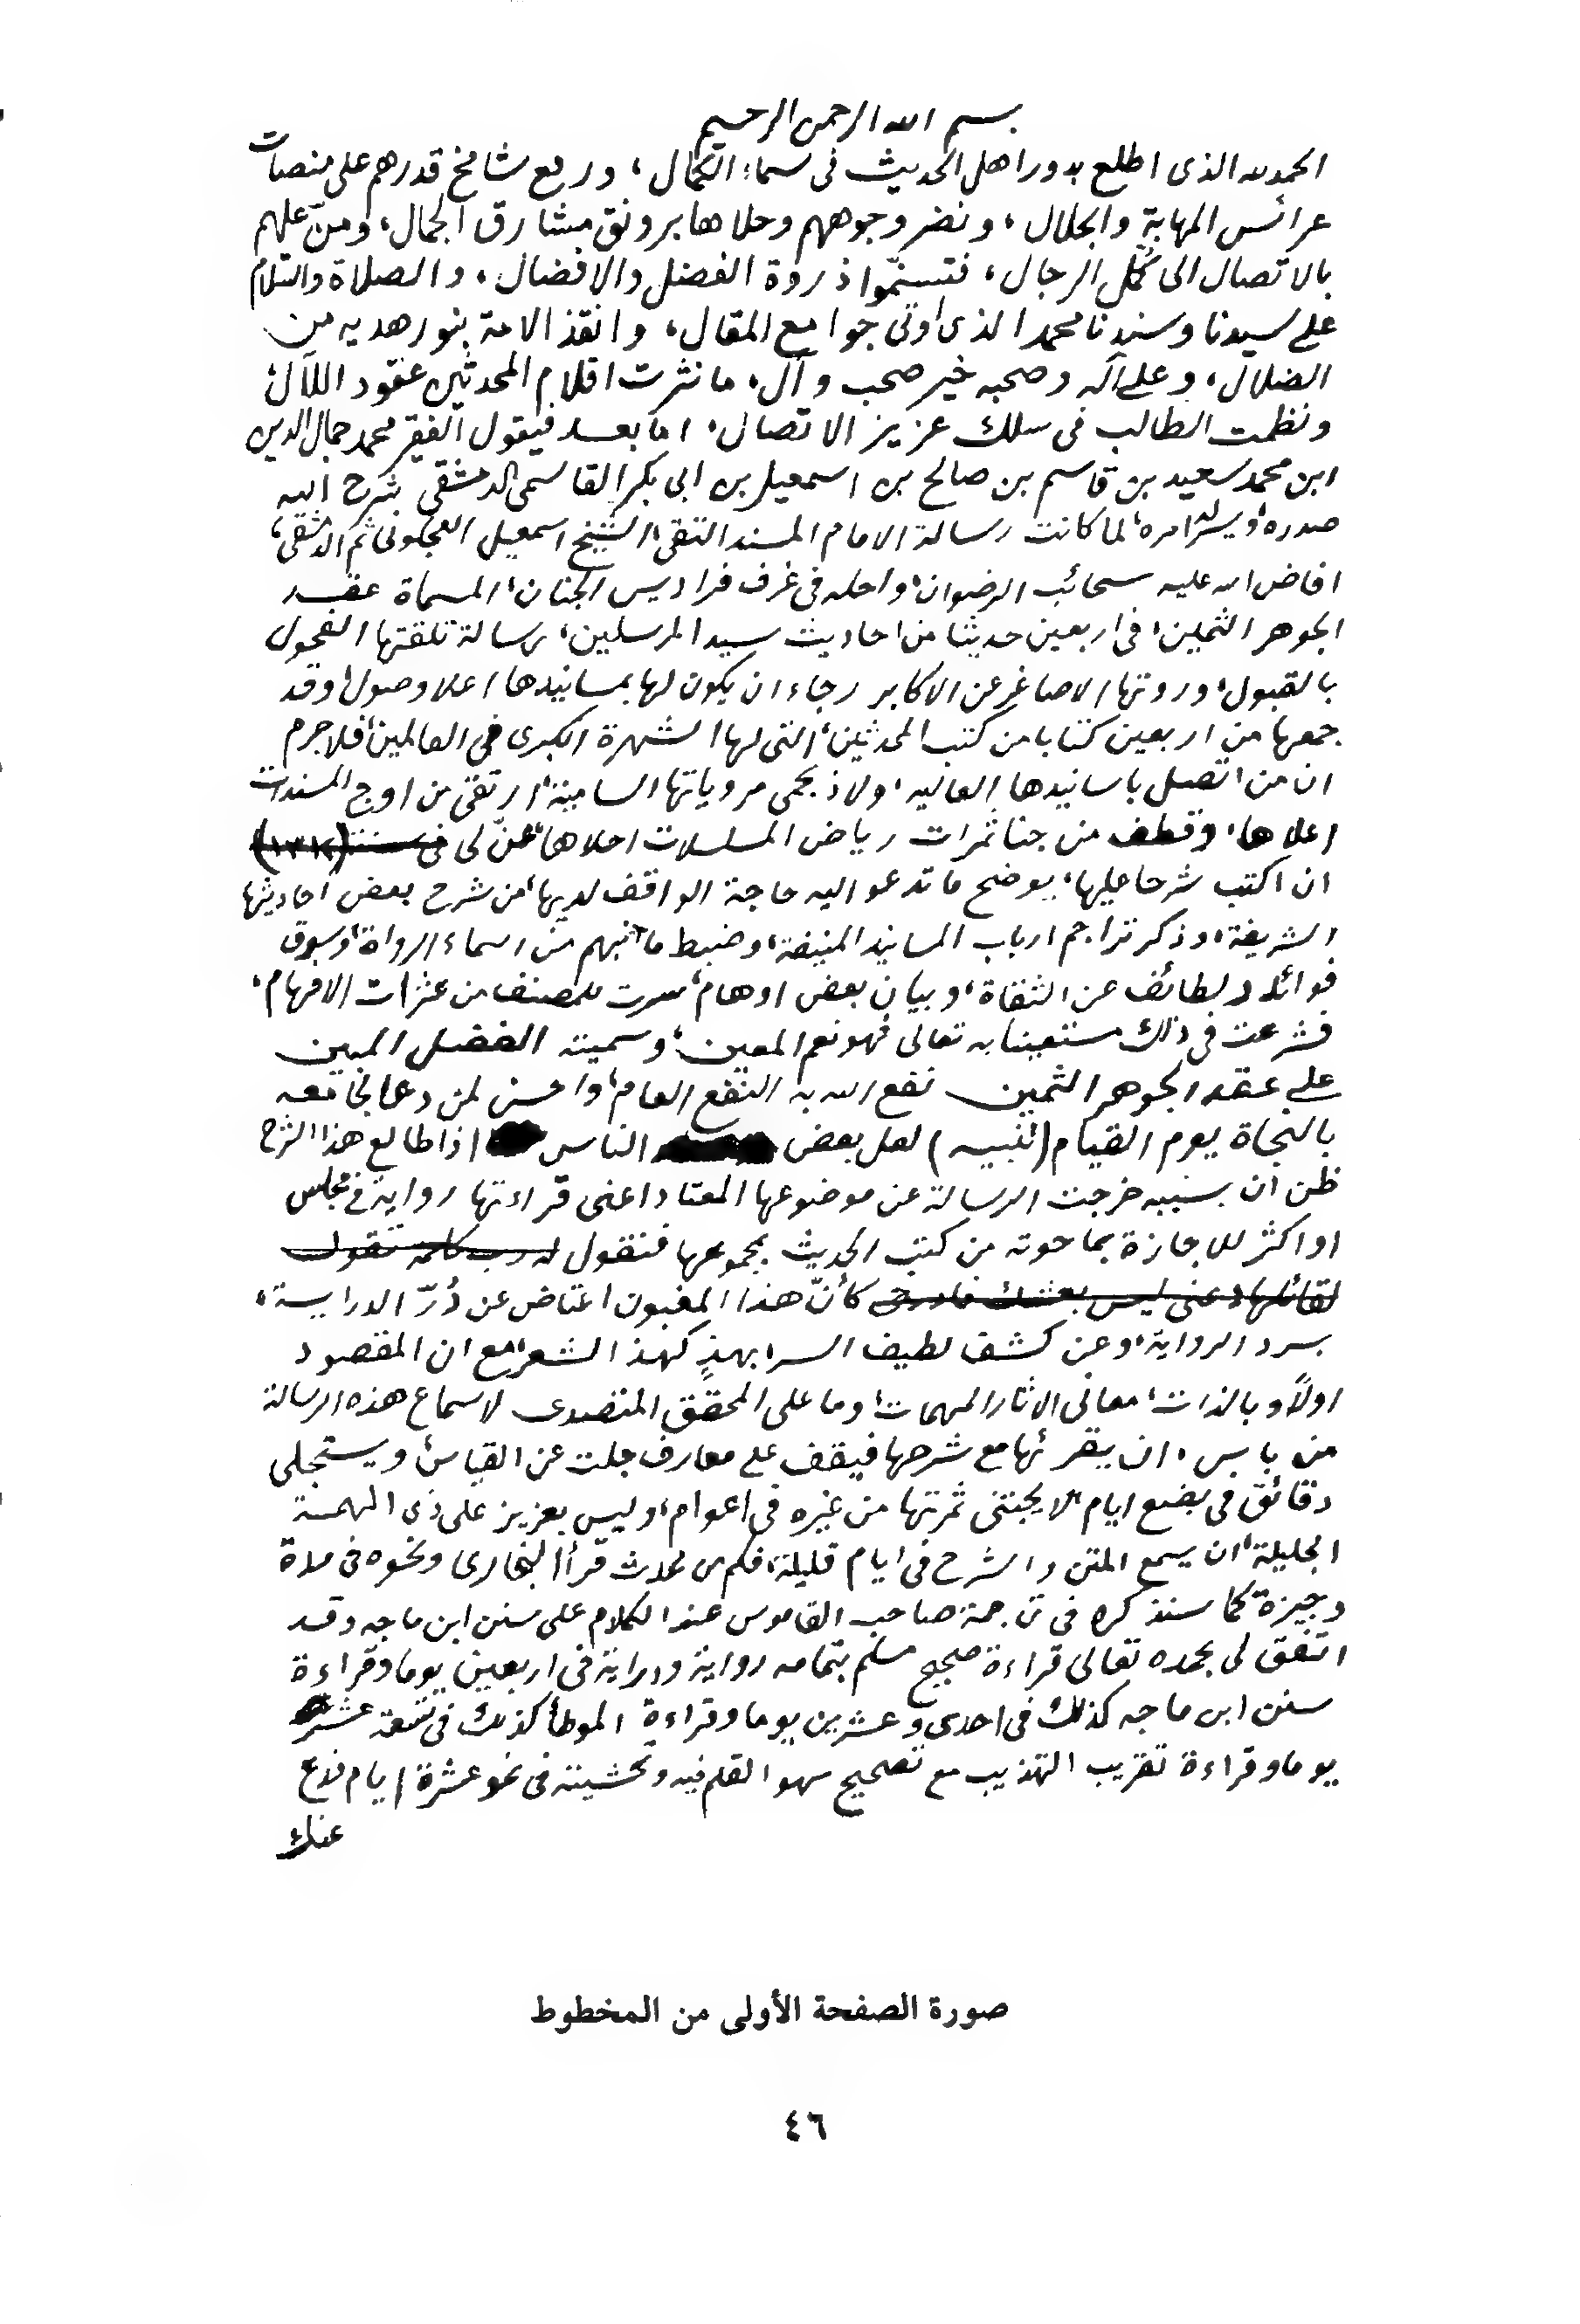 بسم الله الرحمن الرحيم
الحمد لله الذى اطلع بدور اهل الحديث فى سماء الكمال، ورفع شامخ قدرهم على منصات
عرائس المهابة والجلال، ونضر وجوههم وحلاها برونق مشارق الجمال، ومنّ عليهم
بالاتصال الى كمّل الرجال، فتسنّموا ذروة الفضل والافضال، والصلاة والسلام
على سيدنا وسندنا محمد الذى اوتى جوامع المقال، وانقذ الامة بنور هديه من
الضلال، وعلى آله وصحبه خير صحب وآل، ما نثرت اقلام المحدثين عقود اللآل
ونظمت الطالب فى سلك عزيز الاتصال، اما بعد فيقول الفقير محمد جمال الدين
ابن محمد سعيد بن قاسم بن صالح بن اسمعيل بن ابى بكر القاسمى الدمشقى شرح الله
صدره، ويسّر له امره، لما كانت رسالة الامام المسند التقى، الشيخ اسمعيل العجلونى ثم الدمشقى،
افاض الله عليه سحائب الرضوان، واحله فى غرف فراديس الجنان، المسماة عقد
الجوهر الثمين، فى اربعين حديثا من احاديث سيد المرسلين، رسالة تلقتها الفحول
بالقبول، وروتها الاصاغر عن الاكابر رجاء ان يكون لها بمسانيدها اعلا وصول، وقد
جمعها من اربعين كتابا من كتب المحدثين، التى لها الشهرة الكبرى فى العالمين، فلا جرم
ان من اتصل باسانيدها العاليه، ولاذ بحمى مروياتها السامية، ارتقى من اوج المسندات
اعلاها، وقطف من جنا ثمرات رياض المسلسلات احلاها، عنّ لى فى سنة
ان اكتب شرحا عليها، يوضح ما تدعو اليه حاجة الواقف لديها، من شرح بعض احاديثها
الشريفة، وذكر تراجم ارباب المسانيد المنيفة، وضبط ما انبهم من اسماء الرواة، وسوق
فوائد ولطائف عن الثقاة، وبيان بعض اوهام، سرت للمصنف من عثرات الافهام،
فشرعت فى ذلك مستعينا به تعالى فهو نعم المعين، وسميته الفضل المبين
على عقد الجوهر الثمين نفع الله به النفع العام، واحسن لمن دعا لجامعه
بالنجاة يوم القيام (تنبيه) لعل بعض الناس اذا طالع هذا الشرح
ظن ان بسببه خرجت الرسالة عن موضوعها المعتاد اعنى قراءتها رواية فى مجلس
او اكثر للاجازة بما حوته من كتب الحديث بمجموعها فنقول له رب كلمة تقول
لقائلها دعنى ليس بعشك فادرجى كأنّ هذا المغبون اعتاض عن دُرّ الدراية،
بسرد الرواية، وعن كشف لطيف السر، بهذٍ كهذ الشعر، مع ان المقصود
اولاً وبالذات، معانى الاثار المهمات، وما على المحقق المتصدى لاسماع هذه الرسالة
من باس، ان يقرئها مع شرحها فيقف على معارف جلت عن القياس، ويستجلى
دقائق فى بضع ايام، لا يجتنى ثمرتها من غيره فى اعوام، وليس بعزيز على ذى الهمة
الجليلة، ان يسمع المتن والشرح فى ايام قليلة، فكم من محدث قرأ البخارى ونحوه فى مدة
وجيزة كما سنذكره فى ترجمة صاحب القاموس عند الكلام على سنن ابن ماجه وقد
اتفق لى بحمده تعالى قراءة صحيح مسلم بتمامه رواية ودراية فى اربعين يوما وقراءة
سنن ابن ماجه كذلك فى احدى وعشرين يوما وقراءة الموطأ كذلك فى تسعة عشر
يوما وقراءة تقريب التهذيب مع تصحيح سهو القلم فيه وتحشيته فى نحو عشرة ايام فدع
عنك
صورة الصفحة الأولى من المخطوط
٤٦